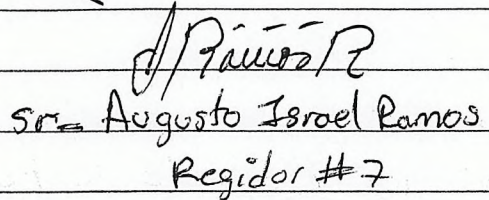 Ramos R
sr= Augusto Israel Ramos
Regidor #7